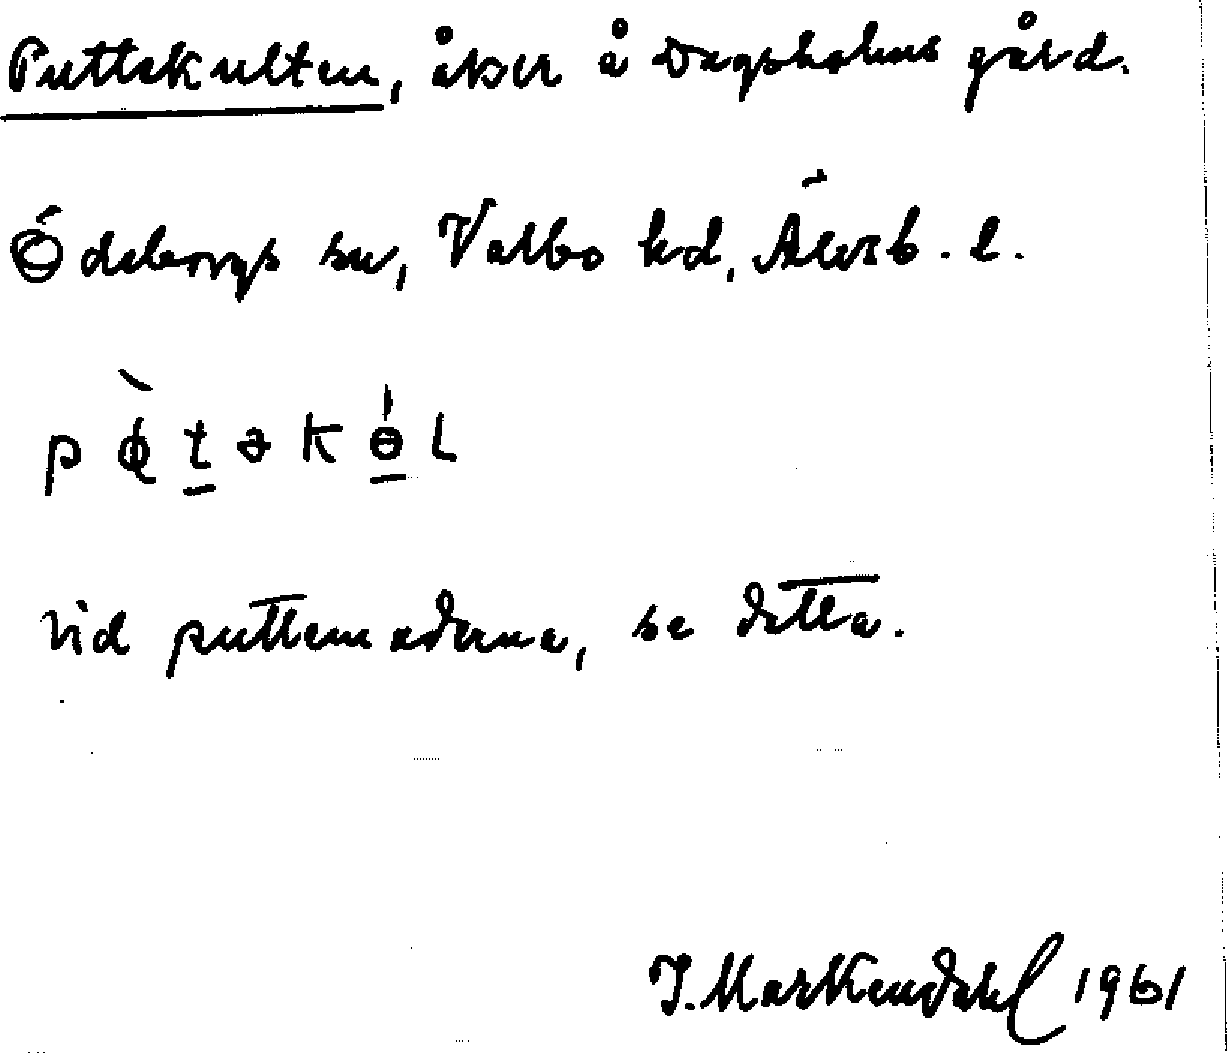 Puttekulten, åker å Dagsholms gård.
Ödeborgs sn, Valbo hd, Älvsb. l.
vid puttemaderna, se detta.
J. Markendahl 1961